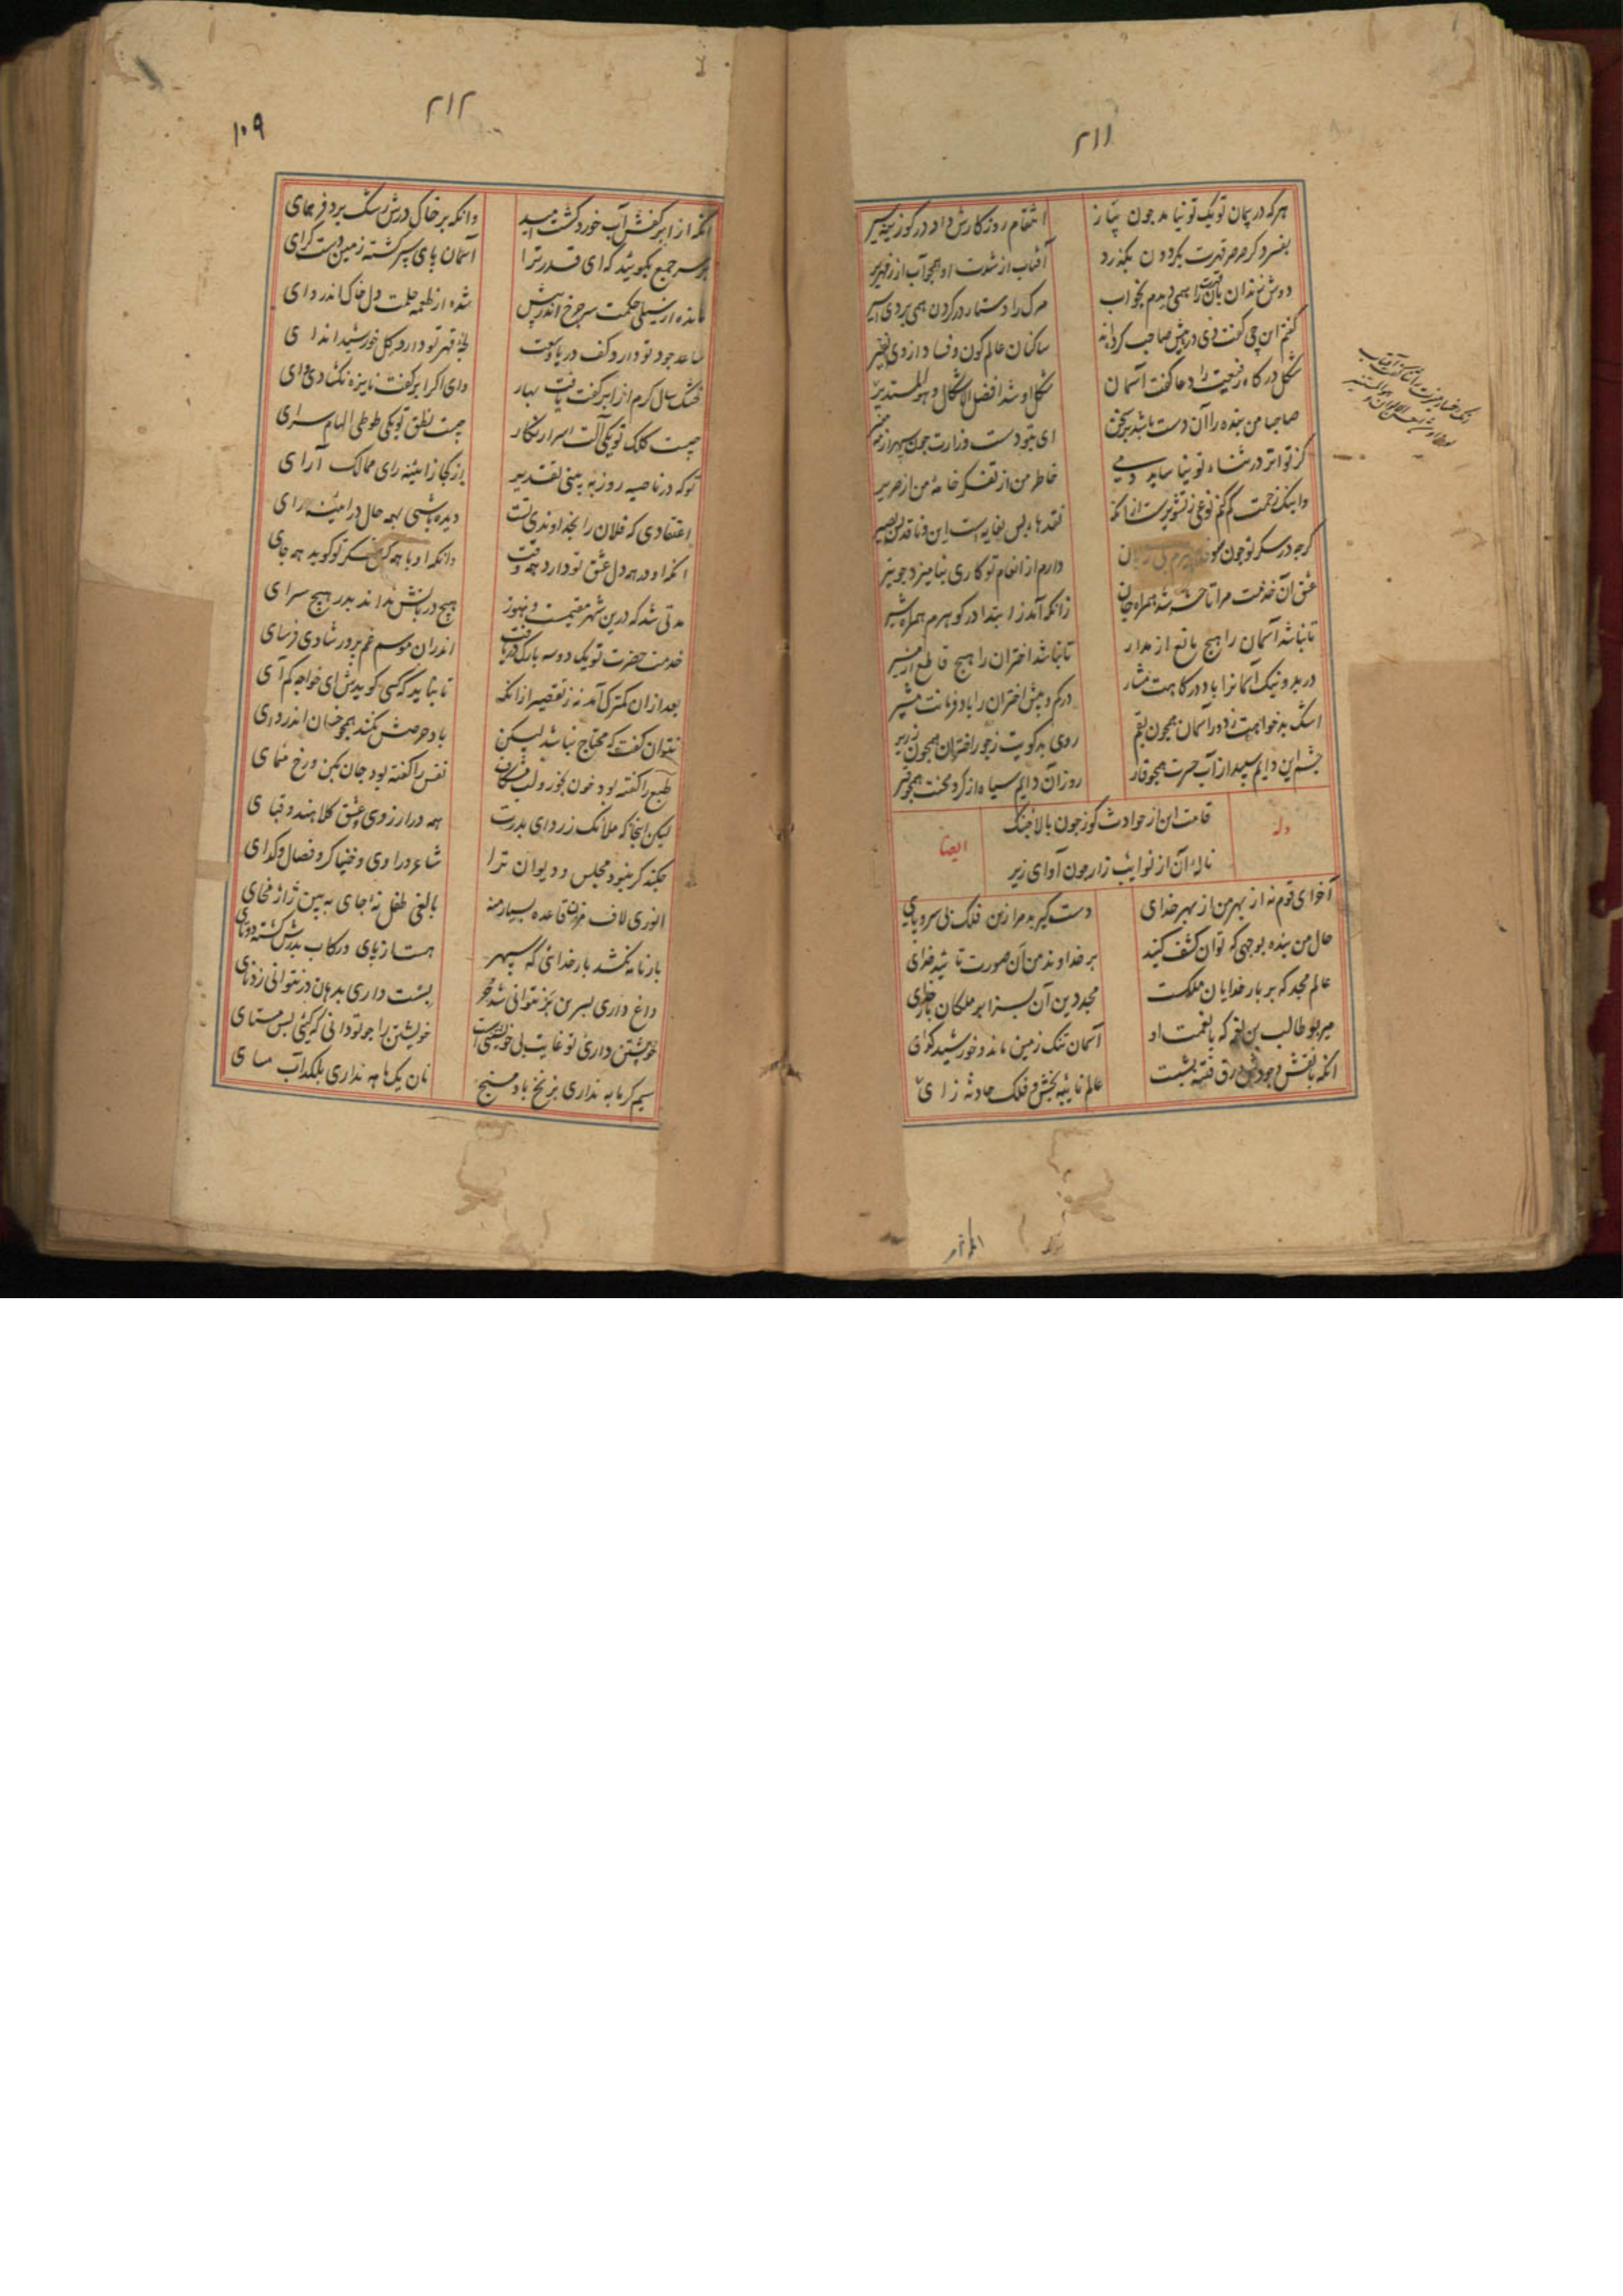 ۲۱۱
هرکه در پیمان تو یک تو نباشد چون پیاز
انتقام روزکارش داد در کوز سیر
بفسرد کر صرصر قهرت بکردون بکذرد
آفتاب از شدت او همجو آب از زمهریر
دوش رندان را همی دیدم بخواب
مرک را دستار در کردن همی بردی اسیر
کفتم این چی کفت دی در پیش صاحب کرده‌اند
ساکنان عالم کون و فساد از وی نفیر
شکل درکاه رفیعت را دعا کفت آسمان
شکل او شد افضل الاشکال و هو المستدیر
رنک رخسار ضمیرت را ثنا کفت آفتاب
صاحبا من بنده را آن دست باشد در سخن
ای بتو دست وزارت چون سپهر از
کز تواتر در ثناء تو نیاساید دمی
خاطر من از تفکر خامهٔ من از صریر
وانیک زحمت کم کنم نوعی ز تشویرست از انک
نقدهاء بس بغایر است این و ناقد بس بصیر
کرچه در سکر تو چون سوسن بی زبان
دارم از انعام تو کاری بنامیزد جو تیر
عشق آن خدمت مرا تا حشر شد همراه جان
زانکه آمد ز ابتدا در کوهرم همراه شیر
تا نباشد آسمان را هیچ مانع از مدار
تا نباشد اختران را هیچ قاطع از مسیر
در بد و نیک آسمانرا باد درکاهت مشار
در کم و بیش اختران را باد فرمانت مشیر
اشک بدخواهت ز دور آسمان همجون بقم
روی بدکویت ز جور اختران همجون زریر
جشم این دایم سپید از آب حسرت همجو قار
روز آن دایم سیاه از کرد محنت همجو قیر
وله
قامت این از حوادث کوز جون بالا جنک
نالهٔ آن از نوایب زار جون آوای زیر
ایضا
آخر ای قوم نه از بهر من از بهر خدای
دست کیرید مرا زین فلک بی سر و پای
حال من بنده بوجهی که توان کشف کنید
بر خداوند من آن صورت تایید خدای
عالم مجد که بر بار خدایان ملکست
مجد دین آن بسزا بر ملکان بار خدای
میر بو طالب بن نعمه که با نعمت او
آسمان تنک زمین ماند و خورشید کدای
انکه با نقش وجودش ورق فتنه بشست
عالم نایبه بخش و فلک حادثه زای
۲۱۲
۱۰۹
انکه از ابر کفش آب خورد کشت امید
وانکه بر خاک درش رشک برد فر همای
بر سر جمع بکویند که ای قدر ترا
آسمان پای سپر کشته زمین دست کرای
مانده از سیلی حکمت سر جرخ اندر پیش
شده از طعمهٔ حلمت دل خاک اندر وای
ساعد جود تو دارد کف دریا وسعت
لجهٔ قهر تو دارد کل خورشید اندای
خشک سال کرم از ابر کفت یافت بهار
وای اکر ابر کفت نایژه نکشادی وای
جیست کلک تو یکی آلت اسرار نکار
جیست نطق تو یکی طوطی الهام سرای
تو که در ناصیه روز به بینی تقدیر
از کجا ز آینه رای ممالک آرای
اعتقادی که فلان را بخداوندی تست
دیده باشی بهمه حال در آیینه رای
انکه او در همه دل عشق تو دارد همه وقت
وانکه او با همه کس شکر تو کوید همه جای
مدتی شد که درین شهر مقیمست و هنوز
هیچ دربانش نداند بدر هیچ سرای
خدمت حضرت تو یک دو سه بارک دریافت
اندران موسم غم پرور شادی فرسای
بعد از ان کمترک آمد نه ز تقصیر از انک
تا نباید که کسی کویدش ای خواجه کم آی
نتوان کفت که محتاج نباشد لیکن
باد حرصش نکند همجو خسان اندروای
طبع را کفته بود خون بخور و لب مکشای
نفس را کفته بود جان بکن و رخ منمای
لیکن اینجا که ملائک ز ردای بدرت
همه در ارزوی عشق کلاهند و قبای
جکند کر نبود مجلس و دیوان ترا
شاعر و راوی و خنیاکر و فصال و کدای
انوری لاف مزن قاعده بسیار منه
بالغی طفل نهٔ جای به بین ژاژ مخای
بارنامه نکشد بار خدایی که سپهر
هست از پای در رکاب پدرش کشته دوتای
داغ داری بسرین بر نتوانی شد حر
پشت داری بدهان در نتوانی زد نای
خویشتن داری تو غایت بی خویشتنی است
خویشتن را جو تو دانی که کیی بس مستای
سیم کرمابه نداری بزنخ باد مسنج
نان یک ماهه نداری بلکد آب مسای